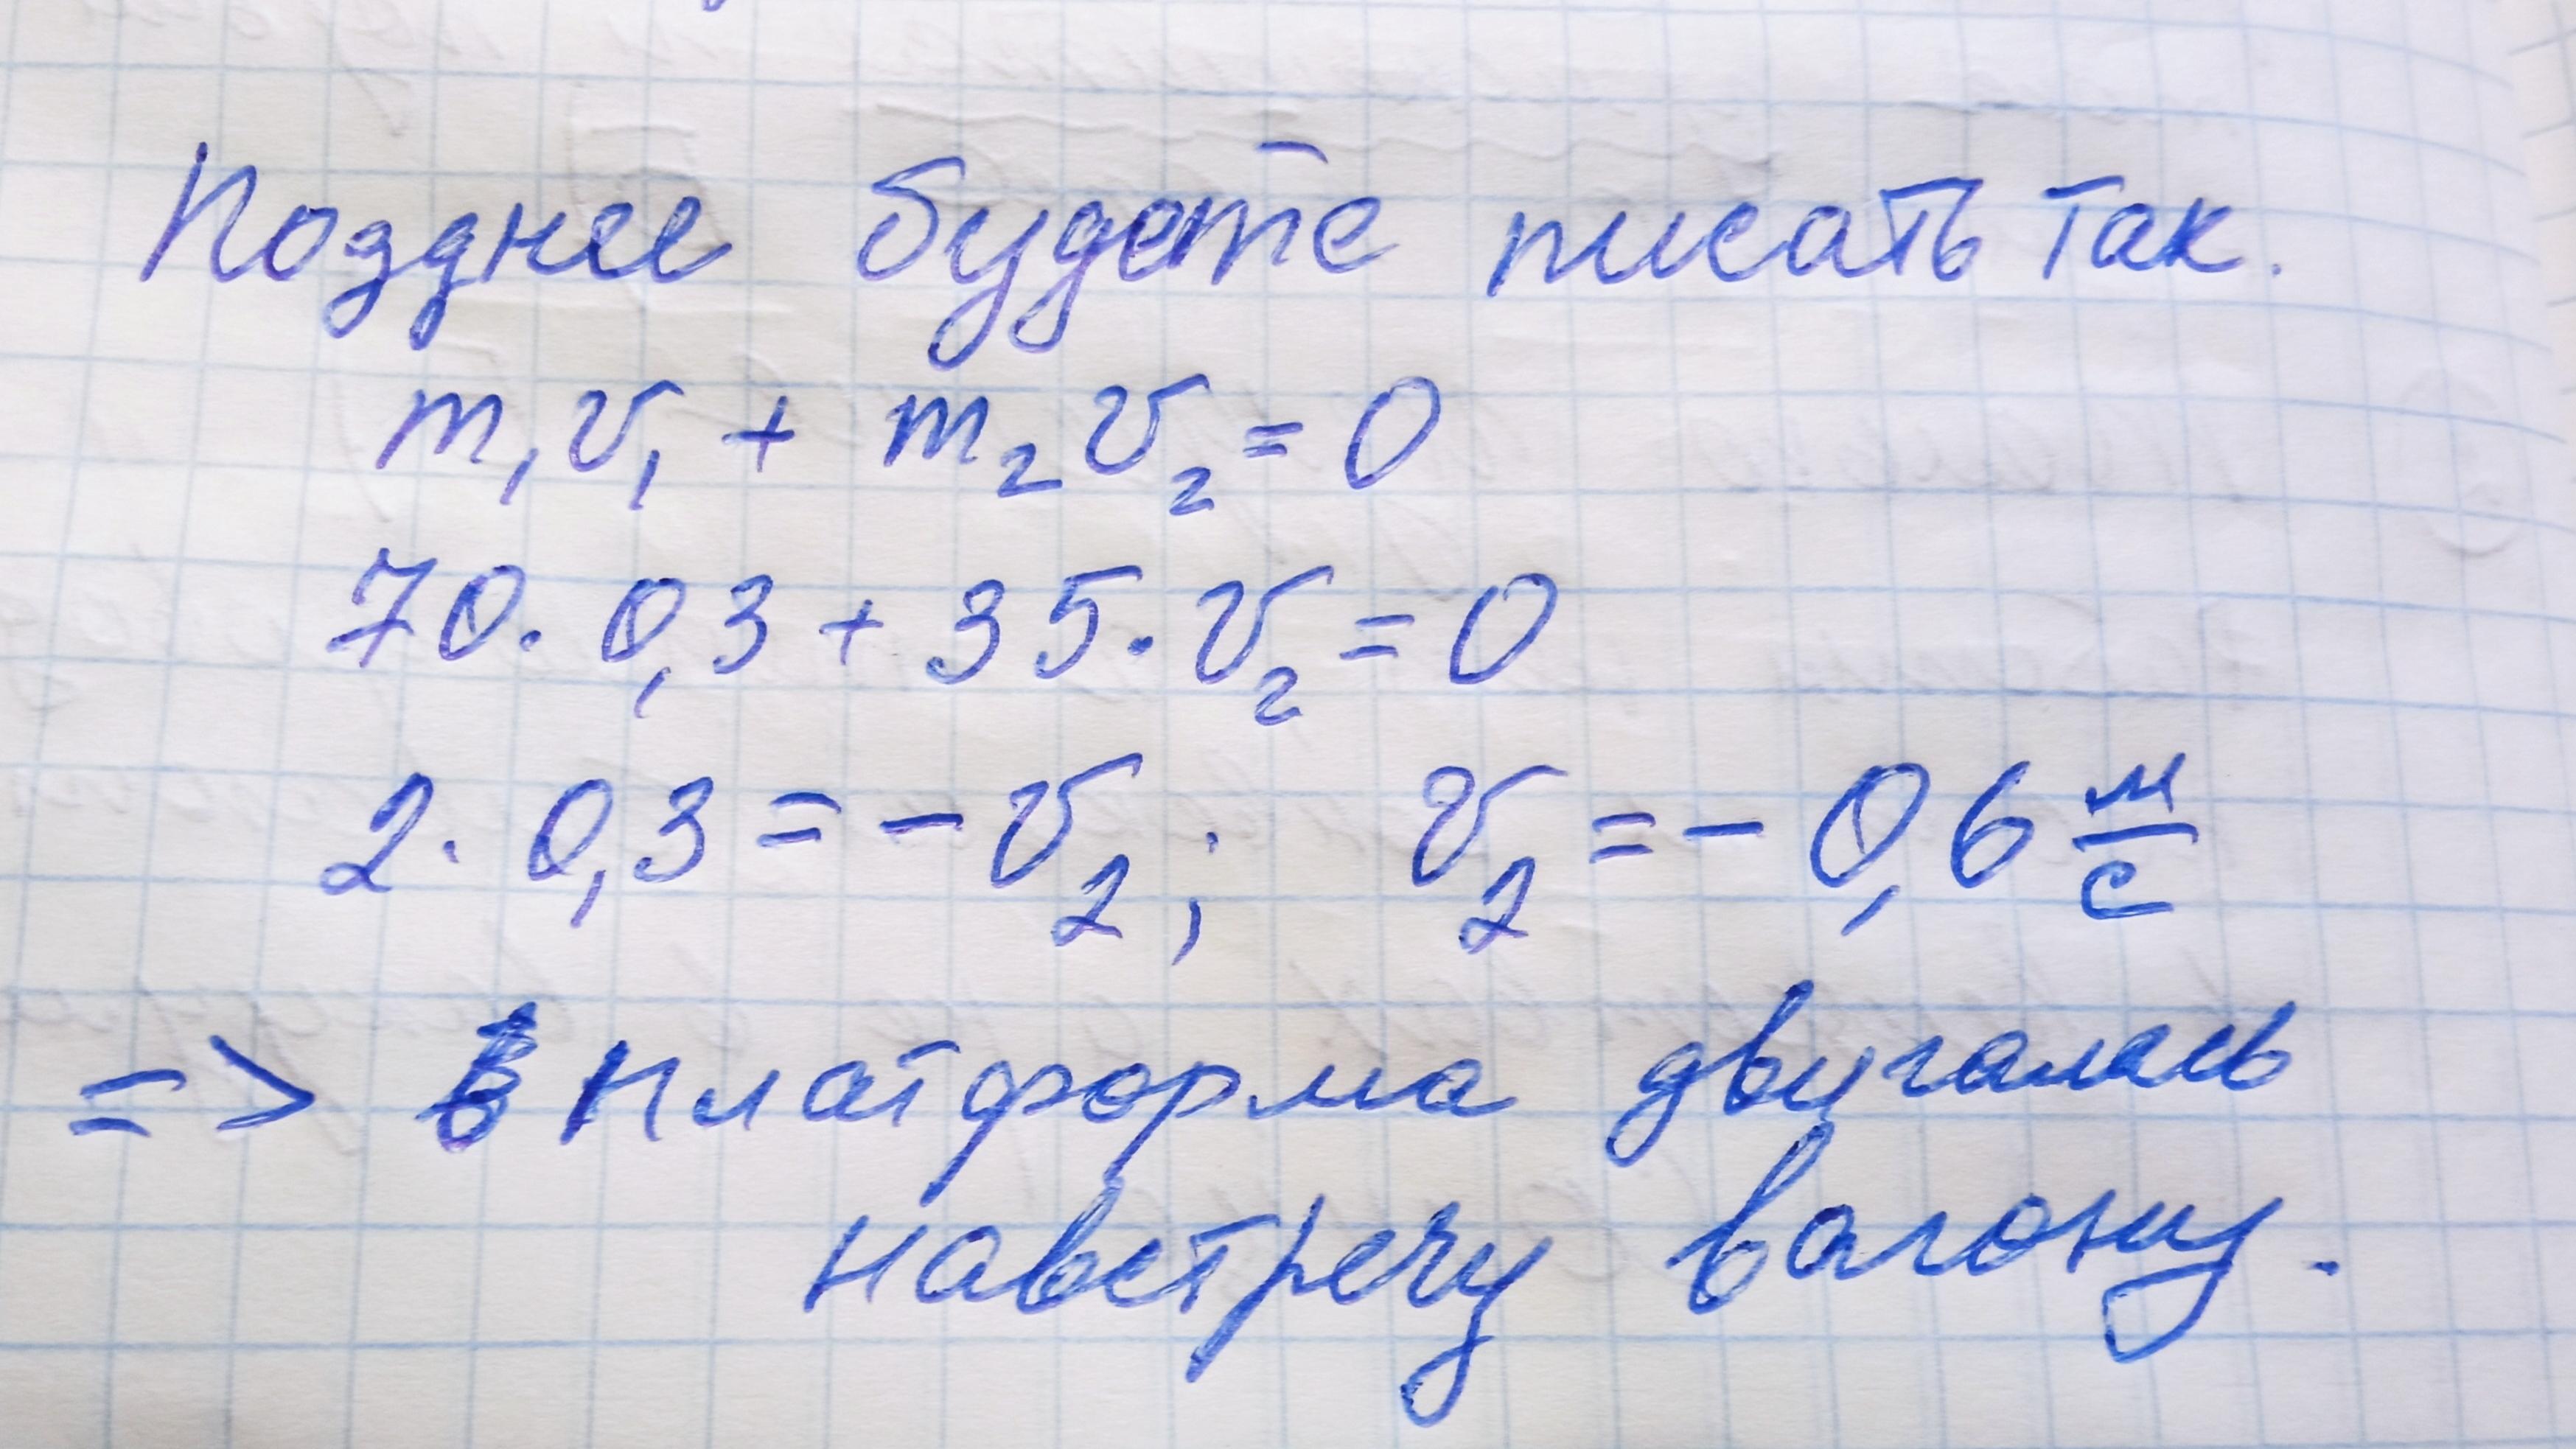 Позднее будете писать так.
m₁v₁ + m₂v₂ = 0
70 · 0,3 + 35 · v₂ = 0
2 · 0,3 = - v₂ ; v₂ = - 0,6 м/с
=> платформа двигалась
навстречу вагону.